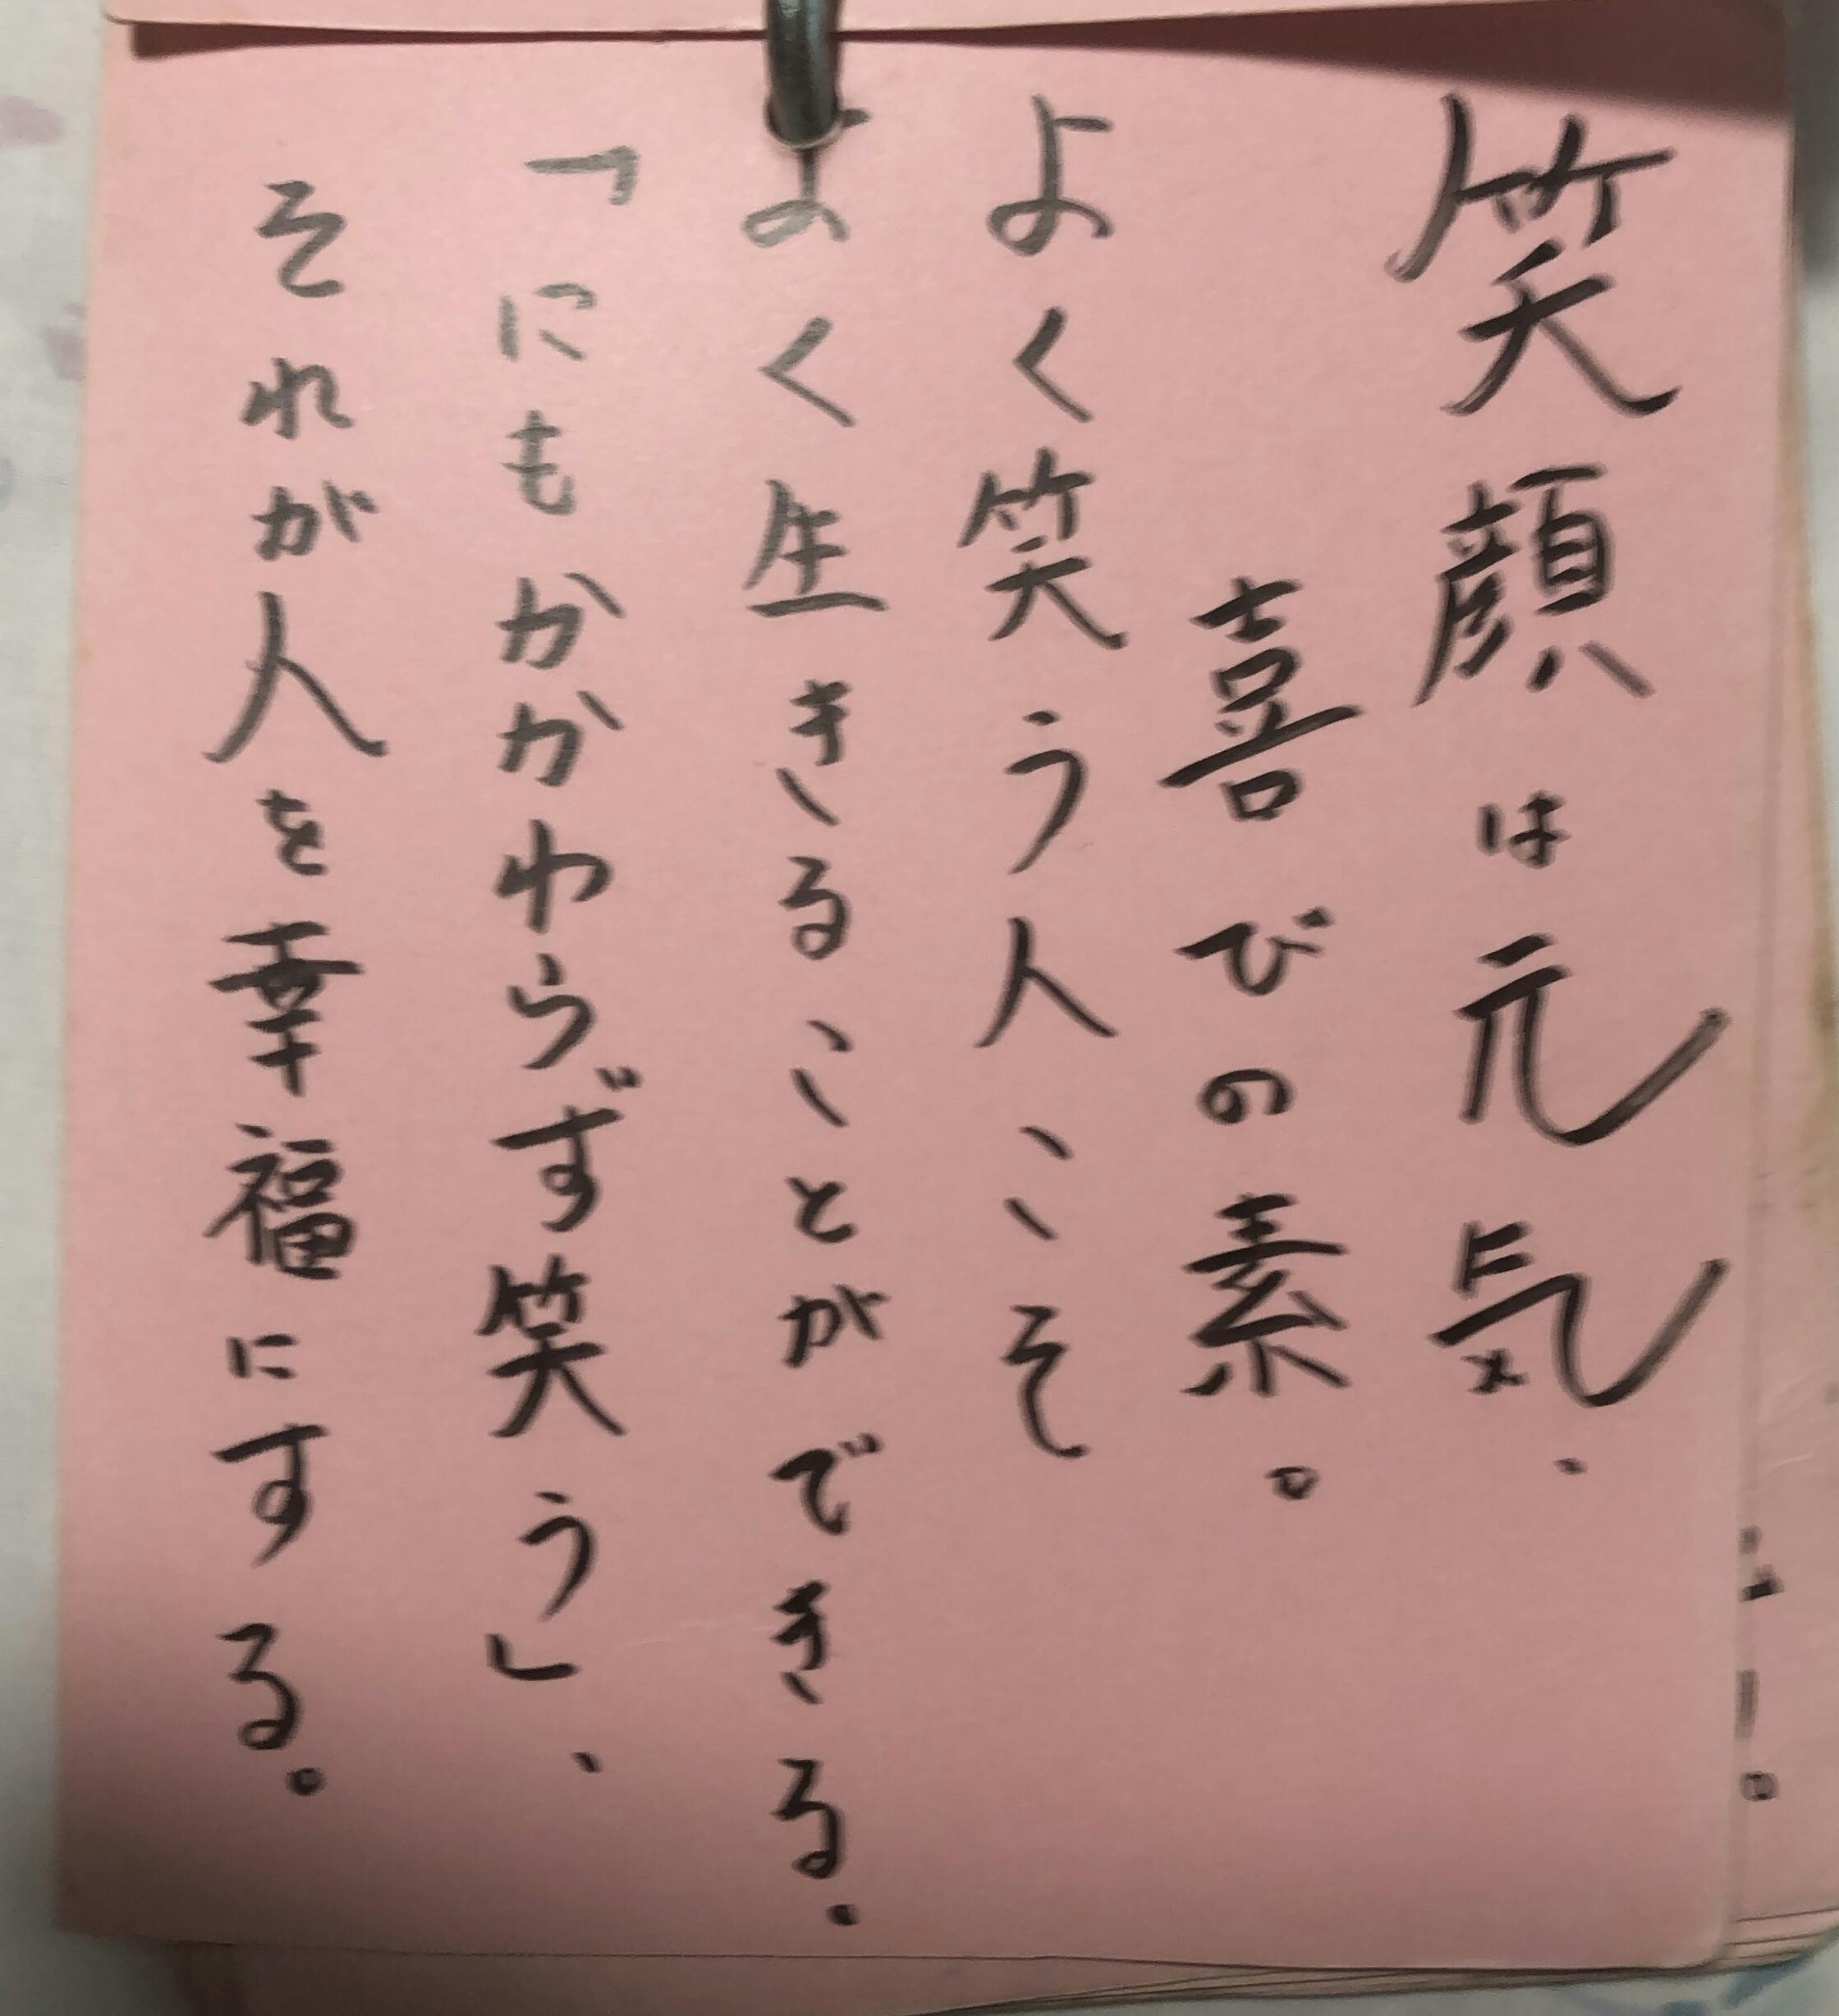 笑顔は元気、
喜びの素。
よく笑う人こそ
よく生きることができる。
「にもかかわらず笑う」、
それが人を幸福にする。